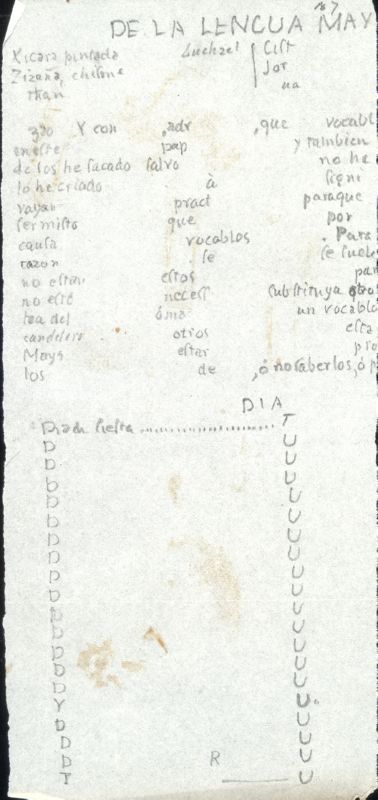 167
DE LA LENGUA MAY
Xicara pintada Luchzel Cist
Zizaña, chisme Jor
than ua
Y con adr , que vocabl
eneste pap y tambien
de los he sacado salvo no he
lo he criado à signi
vayan pract paraque
ser misto que por
causa vocablos . Para
razon se se suele
no estan estos par
no esté necess substituya otro
tra del óma un vocablo
candelero otros esta
Maya estar pro
los de , ó no saberlos, ó p
DIA
T
Dia de fiesta ........................ U
D U
D U
D U
D U
D U
D U
D U
D U
D U
D U
D U
D U
D U
D U
Y U
D U
D U
D R U
T U